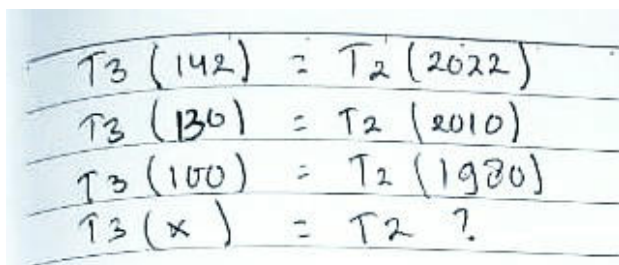 T3 (142) = T2 (2022)
T3 (130) = T2 (2010)
T3 (100) = T2 (1980)
T3 (x) = T2 ?